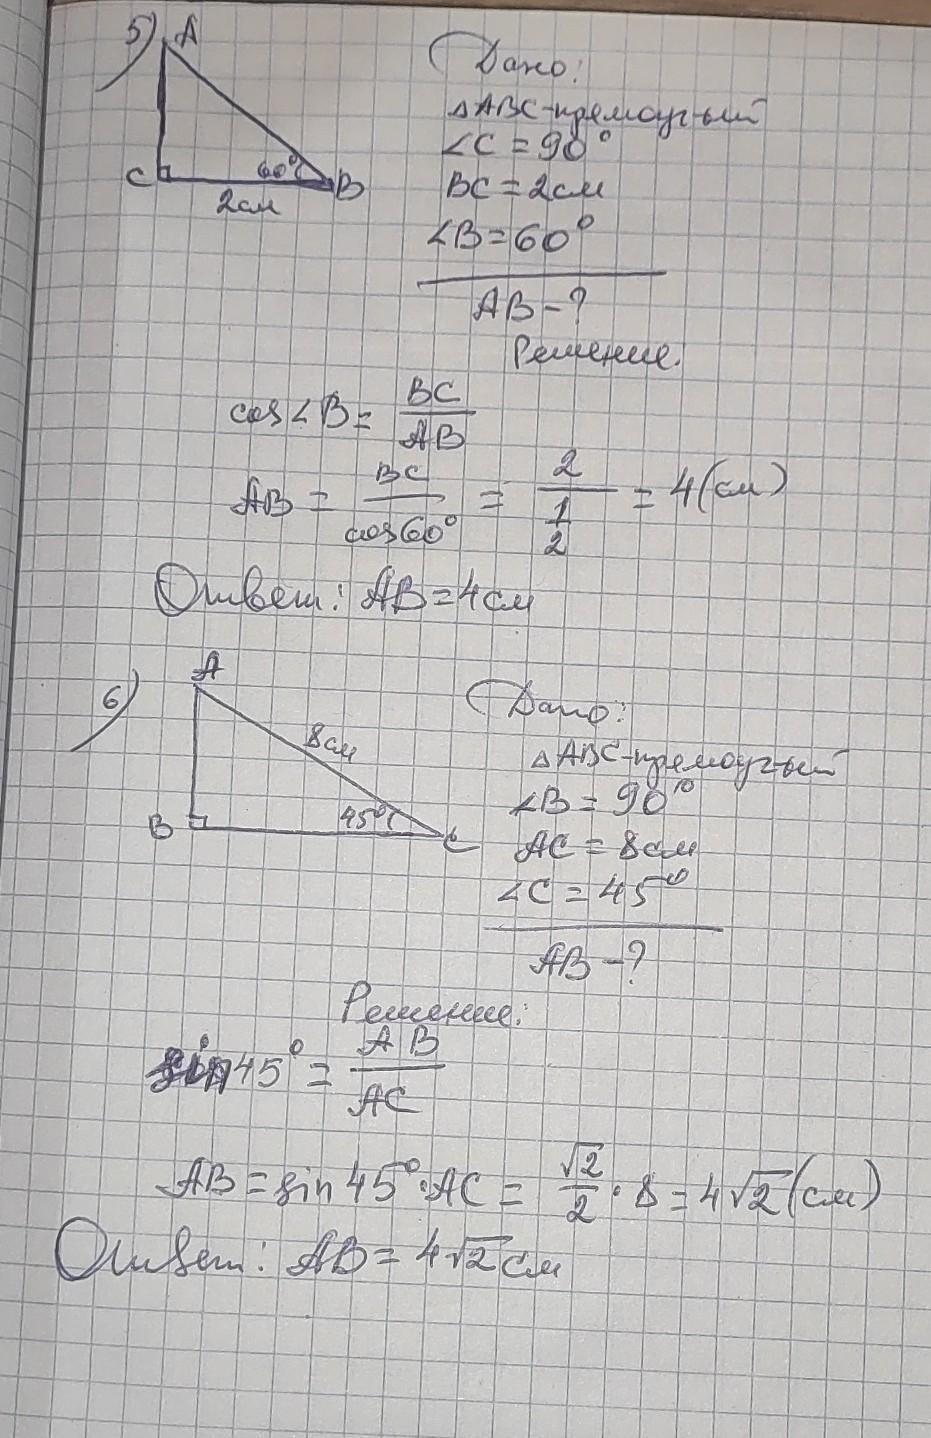 5)
A
C
60°
B
2см
Дано:
△ABC-прямоуг-ый
∠C = 90°
BC = 2см
∠B = 60°
AB - ?
Решение.
cos∠B = BC/AB
AB = BC/cos60° = 2/(1/2) = 4(см)
Ответ: AB = 4см
6)
A
8см
B
45°
C
Дано:
△ABC-прямоуг-ый
∠B = 90°
AC = 8см
∠C = 45°
AB - ?
Решение:
sin45° = AB/AC
AB = sin45°·AC = √2/2 · 8 = 4√2(см)
Ответ: AB = 4√2см